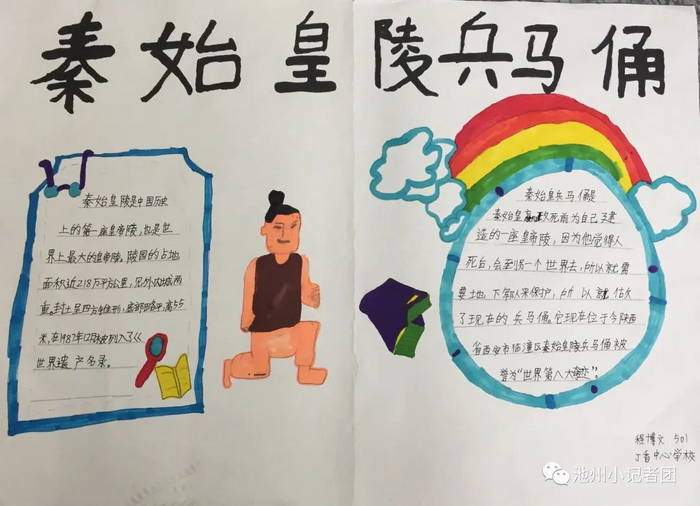 秦始皇陵兵马俑
秦始皇陵是中国历史
上的第一座皇帝陵,也是世
界上最大的皇帝陵。陵园的占地
面积近218万平方公里,
封土呈四方锥形,高55
米,在1987年12月被列入了《
世界遗产名录。
秦始皇兵马俑是
秦始皇死前为自己建
造的一座皇帝陵,因为他觉得人
死后,会到另一个世界去,所以就需
要地下军队来保护,所以就
了现在的兵马俑。它现在位于今陕西
省西安市临潼区秦始皇陵兵马俑被
誉为“世界第八大奇迹”。
程博文 501
丁香中心学校
池州小记者团